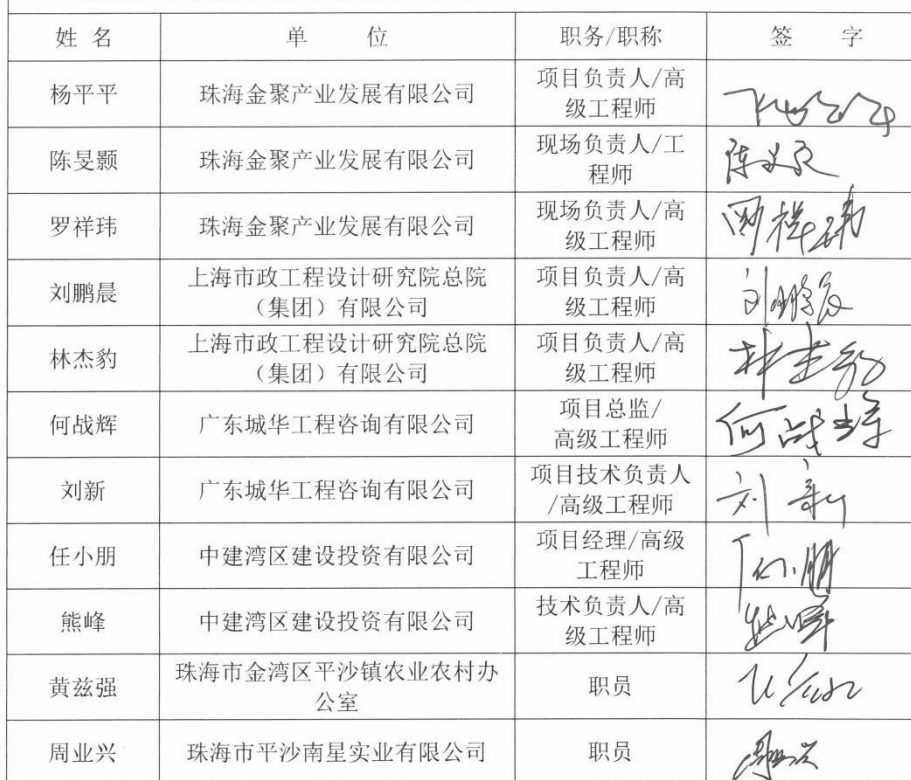 姓 名 单 位 职务/职称 签 字
杨平平 珠海金聚产业发展有限公司 项目负责人/高
级工程师
陈旻颢 珠海金聚产业发展有限公司 现场负责人/工
程师
罗祥玮 珠海金聚产业发展有限公司 现场负责人/高
级工程师 罗祥玮
刘鹏晨 上海市政工程设计研究院总院
（集团）有限公司 项目负责人/高
级工程师 刘鹏晨
林杰豹 上海市政工程设计研究院总院
（集团）有限公司 项目负责人/高
级工程师 林杰豹
何战辉 广东城华工程咨询有限公司 项目总监/
高级工程师 何战辉
刘新 广东城华工程咨询有限公司 项目技术负责人
/高级工程师 刘新
任小朋 中建湾区建设投资有限公司 项目经理/高级
工程师 任小朋
熊峰 中建湾区建设投资有限公司 技术负责人/高
级工程师 熊峰
黄兹强 珠海市金湾区平沙镇农业农村办
公室 职员
周业兴 珠海市平沙南星实业有限公司 职员 周业兴